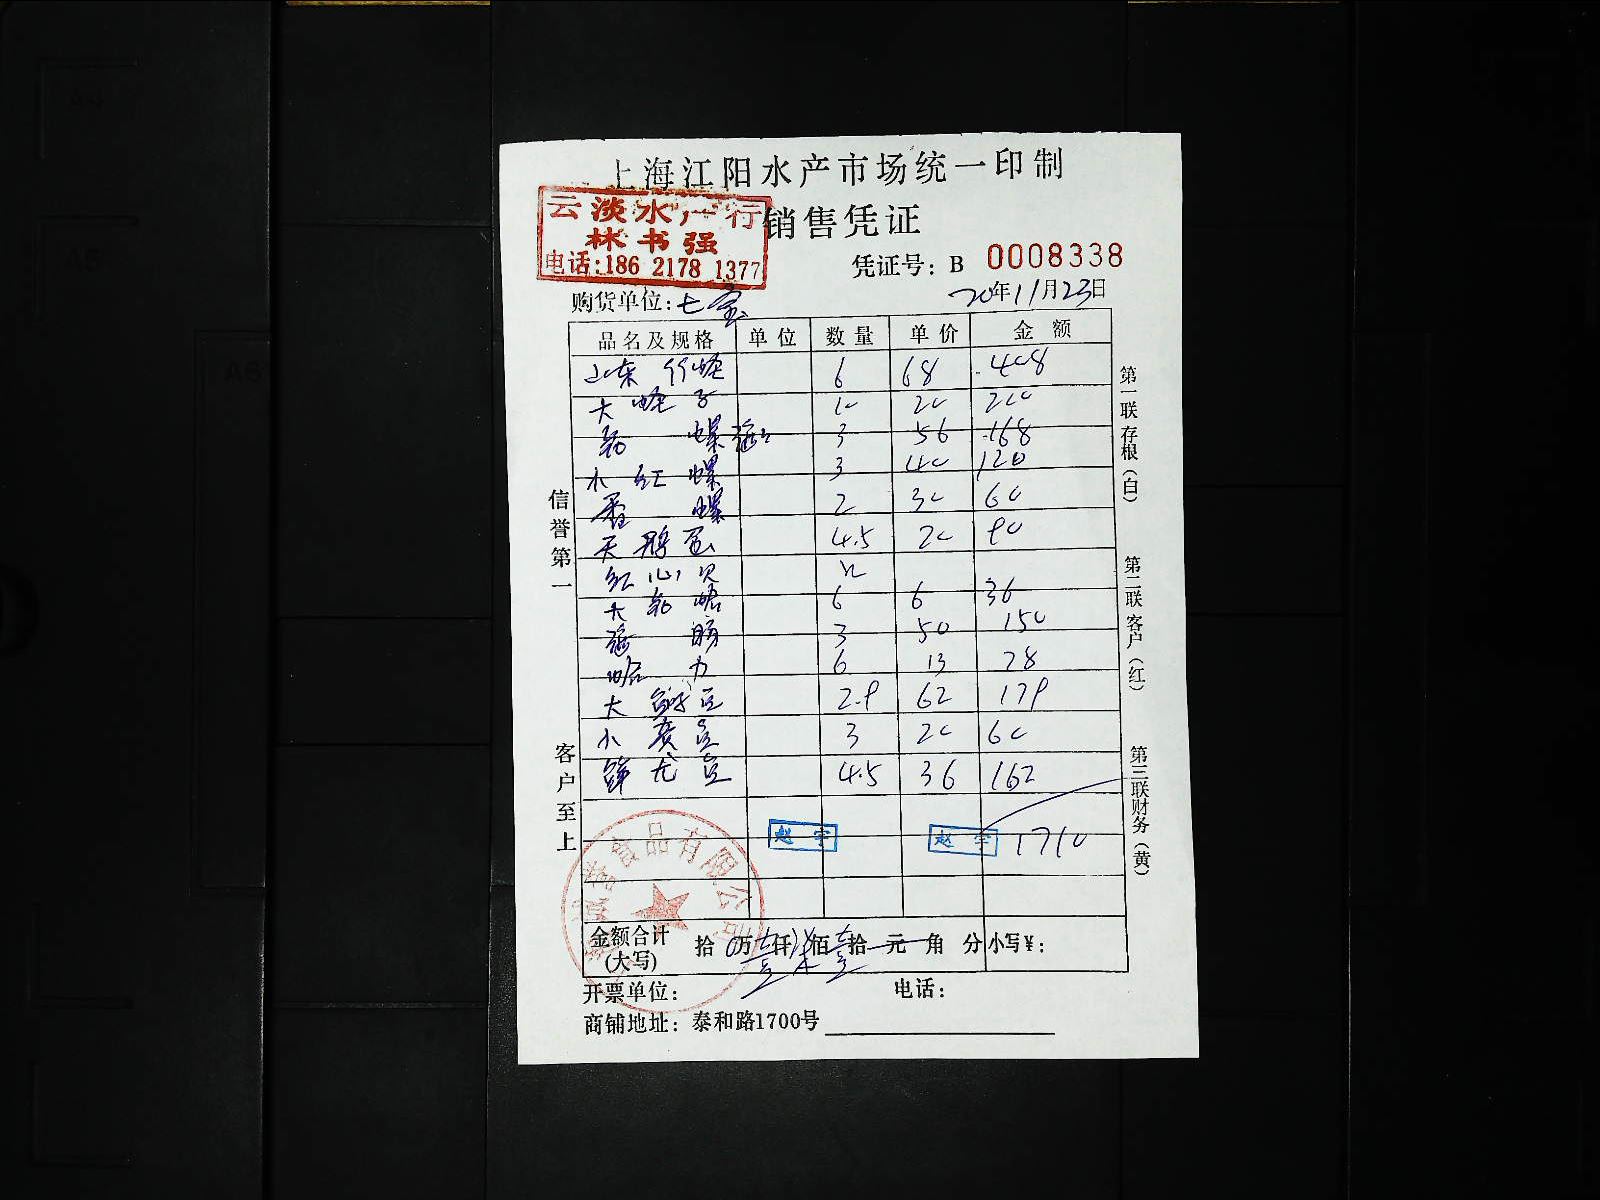 上海江阳水产市场统一印制
云淡水产行 销售凭证
林书强
电话:186 2178 1377
凭证号: B 0008338
20年11月23日
购货单位:七宝
品名及规格 单位 数量 单价 金额
山东竹蛏 6 68 408
大蛏子 10 20 200
螺 3 56 168
水红螺 3 40 120
香螺 2 30 60
天鹅蛋 4.5 20 90
红心
大 6 6 36
3 50 150
哈 6 13 78
大 2.9 62 179
小 3 20 60
4.5 36 162
赵宇 赵宇 1710
金额合计 拾 万壹仟柒佰壹拾 元 角 分 小写¥:
(大写)
开票单位: 电话:
商铺地址: 泰和路1700号
信誉第一
客户至上
第一联存根(白)
第二联客户(红)
第三联财务(黄)
食品有限公司